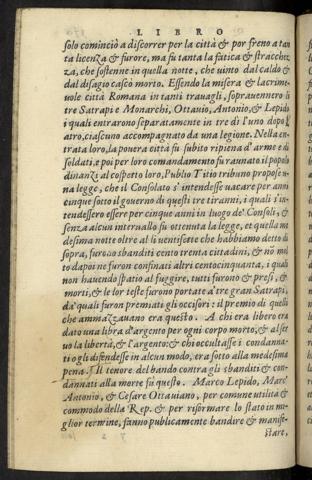 LIBRO
solo cominciò a discorrer per la città & por freno a tan
ta licenza & furore, ma fu tanta la fatica & stracchez
za, che sostenne in quella notte, che vinto dal caldo &
dal disagio cascò morto. Essendo la misera & lacrime
uole città Romana in tanti trauagli, soprauennero li
tre Satrapi e Monarchi, Ottauio, Antonio, & Lepido
i quali entrarono separatamente in tre dì l'uno dopo l'
atro, ciascuno accompagnato da una legione. Nella en
trata loro, la pouera città fu subito ripiena d'arme e di
soldati, e poi per loro comandamento fu raunato il popolo
dinanzi al cospetto loro, Publio Titio tribuno propose u
na legge, che il Consolato s'intendesse uacare per anni
cinque sotto il gouerno di questi tre tiranni, i quali s'in
tendessero essere per cinque anni in luogo de' Consoli, &
senza alcun interuallo fu ottenuta la legge, et quella me
desima notte oltre al li uentisette che habbiamo detto di
sopra, furono sbanditi cento trenta cittadini, & nõ mol
to dapoi ne furon confinati altri centocinquanta, i quali
non hauendo spatio al fuggire, tutti furono & presi, &
morti, & le lor teste furono portate a' tre gran Satrapi,
da' quali furon premiati gli occisori: il premio di quelli
che ammazzauano era questo. A chi era libero era
dato una libra d'argento per ogni corpo morto, & al ser
uo la libertà, & l'argento: & chi occultasse i condanna-
ti o gli difendesse in alcun modo, era sotto alla medesima
pena. Il tenore del bando contra gli sbanditi & con-
dannati alla morte fu questo. Marco Lepido, Marc'
Antonio, & Cesare Ottauiano, per comune utilità &
commodo della Rep. & per riformare lo stato in me-
glior termine, fanno publicamente bandire & manife-
stare,